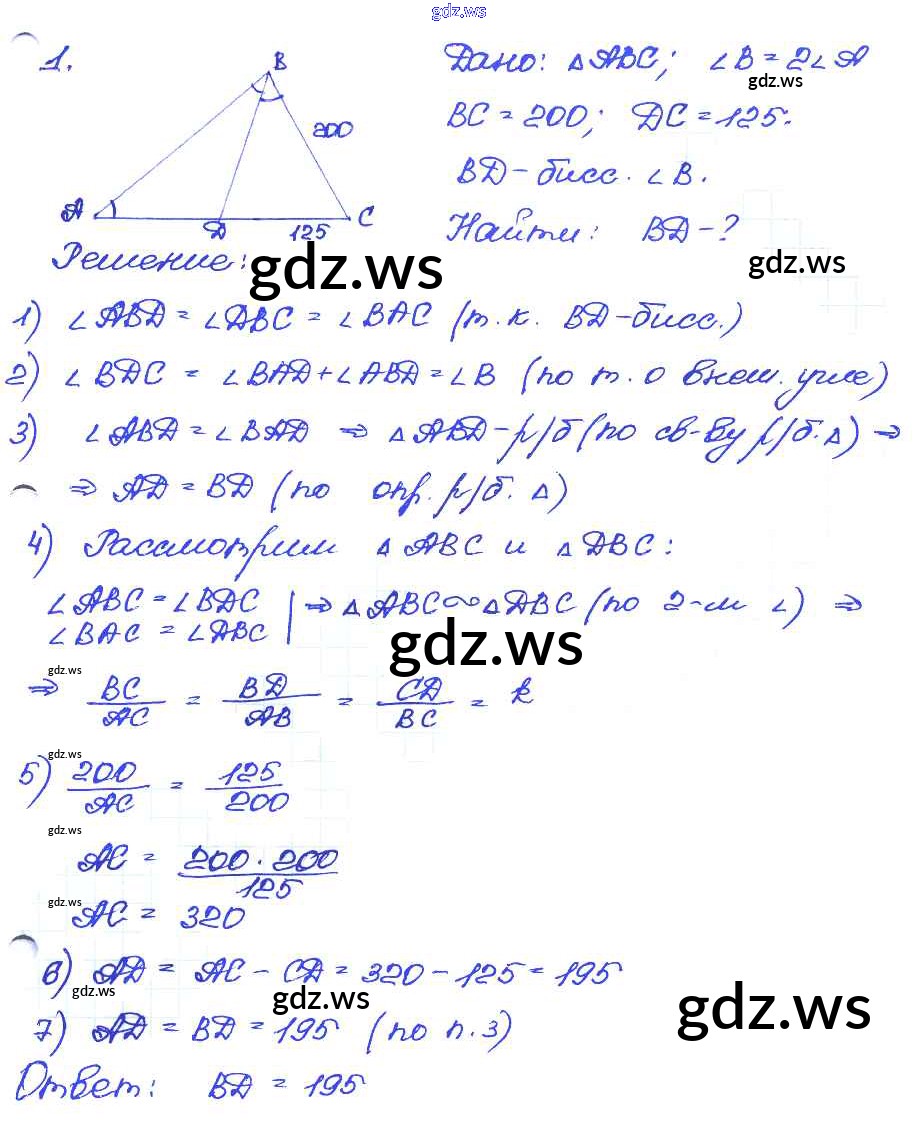 gdz.ws
1.
B
200
A
D
125
C
Дано: △ABC; ∠B = 2∠A
gdz.ws
BC = 200; DC = 125.
BD - бисс. ∠B.
Найти: BD - ?
gdz.ws
Решение:
gdz.ws
1) ∠ABD = ∠DBC = ∠BAC (т.к. BD - бисс.)
2) ∠BDC = ∠BAD + ∠ABD = ∠B (по т. о внеш. угле)
3) ∠ABD = ∠BAD ⇒ △ABD - р/б (по св-ву р/б. △) ⇒
⇒ AD = BD (по опр. р/б. △)
4) Рассмотрим △ABC и △DBC:
∠ABC = ∠BDC | ⇒ △ABC ∾ △DBC (по 2-м ∠) ⇒
∠BAC = ∠DBC
gdz.ws
gdz.ws
⇒ BC/AC = BD/AB = CD/BC = k
gdz.ws
5) 200/AC = 125/200
gdz.ws
AC = 200 · 200/125
gdz.ws
AC = 320
6) AD = AC - CD = 320 - 125 = 195
gdz.ws
gdz.ws
gdz.ws
7) AD = BD = 195 (по п. 3)
Ответ: BD = 195